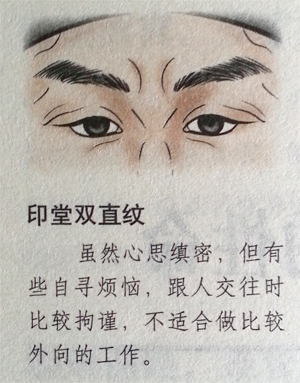 印堂双直纹
虽然心思缜密，但有
些自寻烦恼，跟人交往时
比较拘谨，不适合做比较
外向的工作。